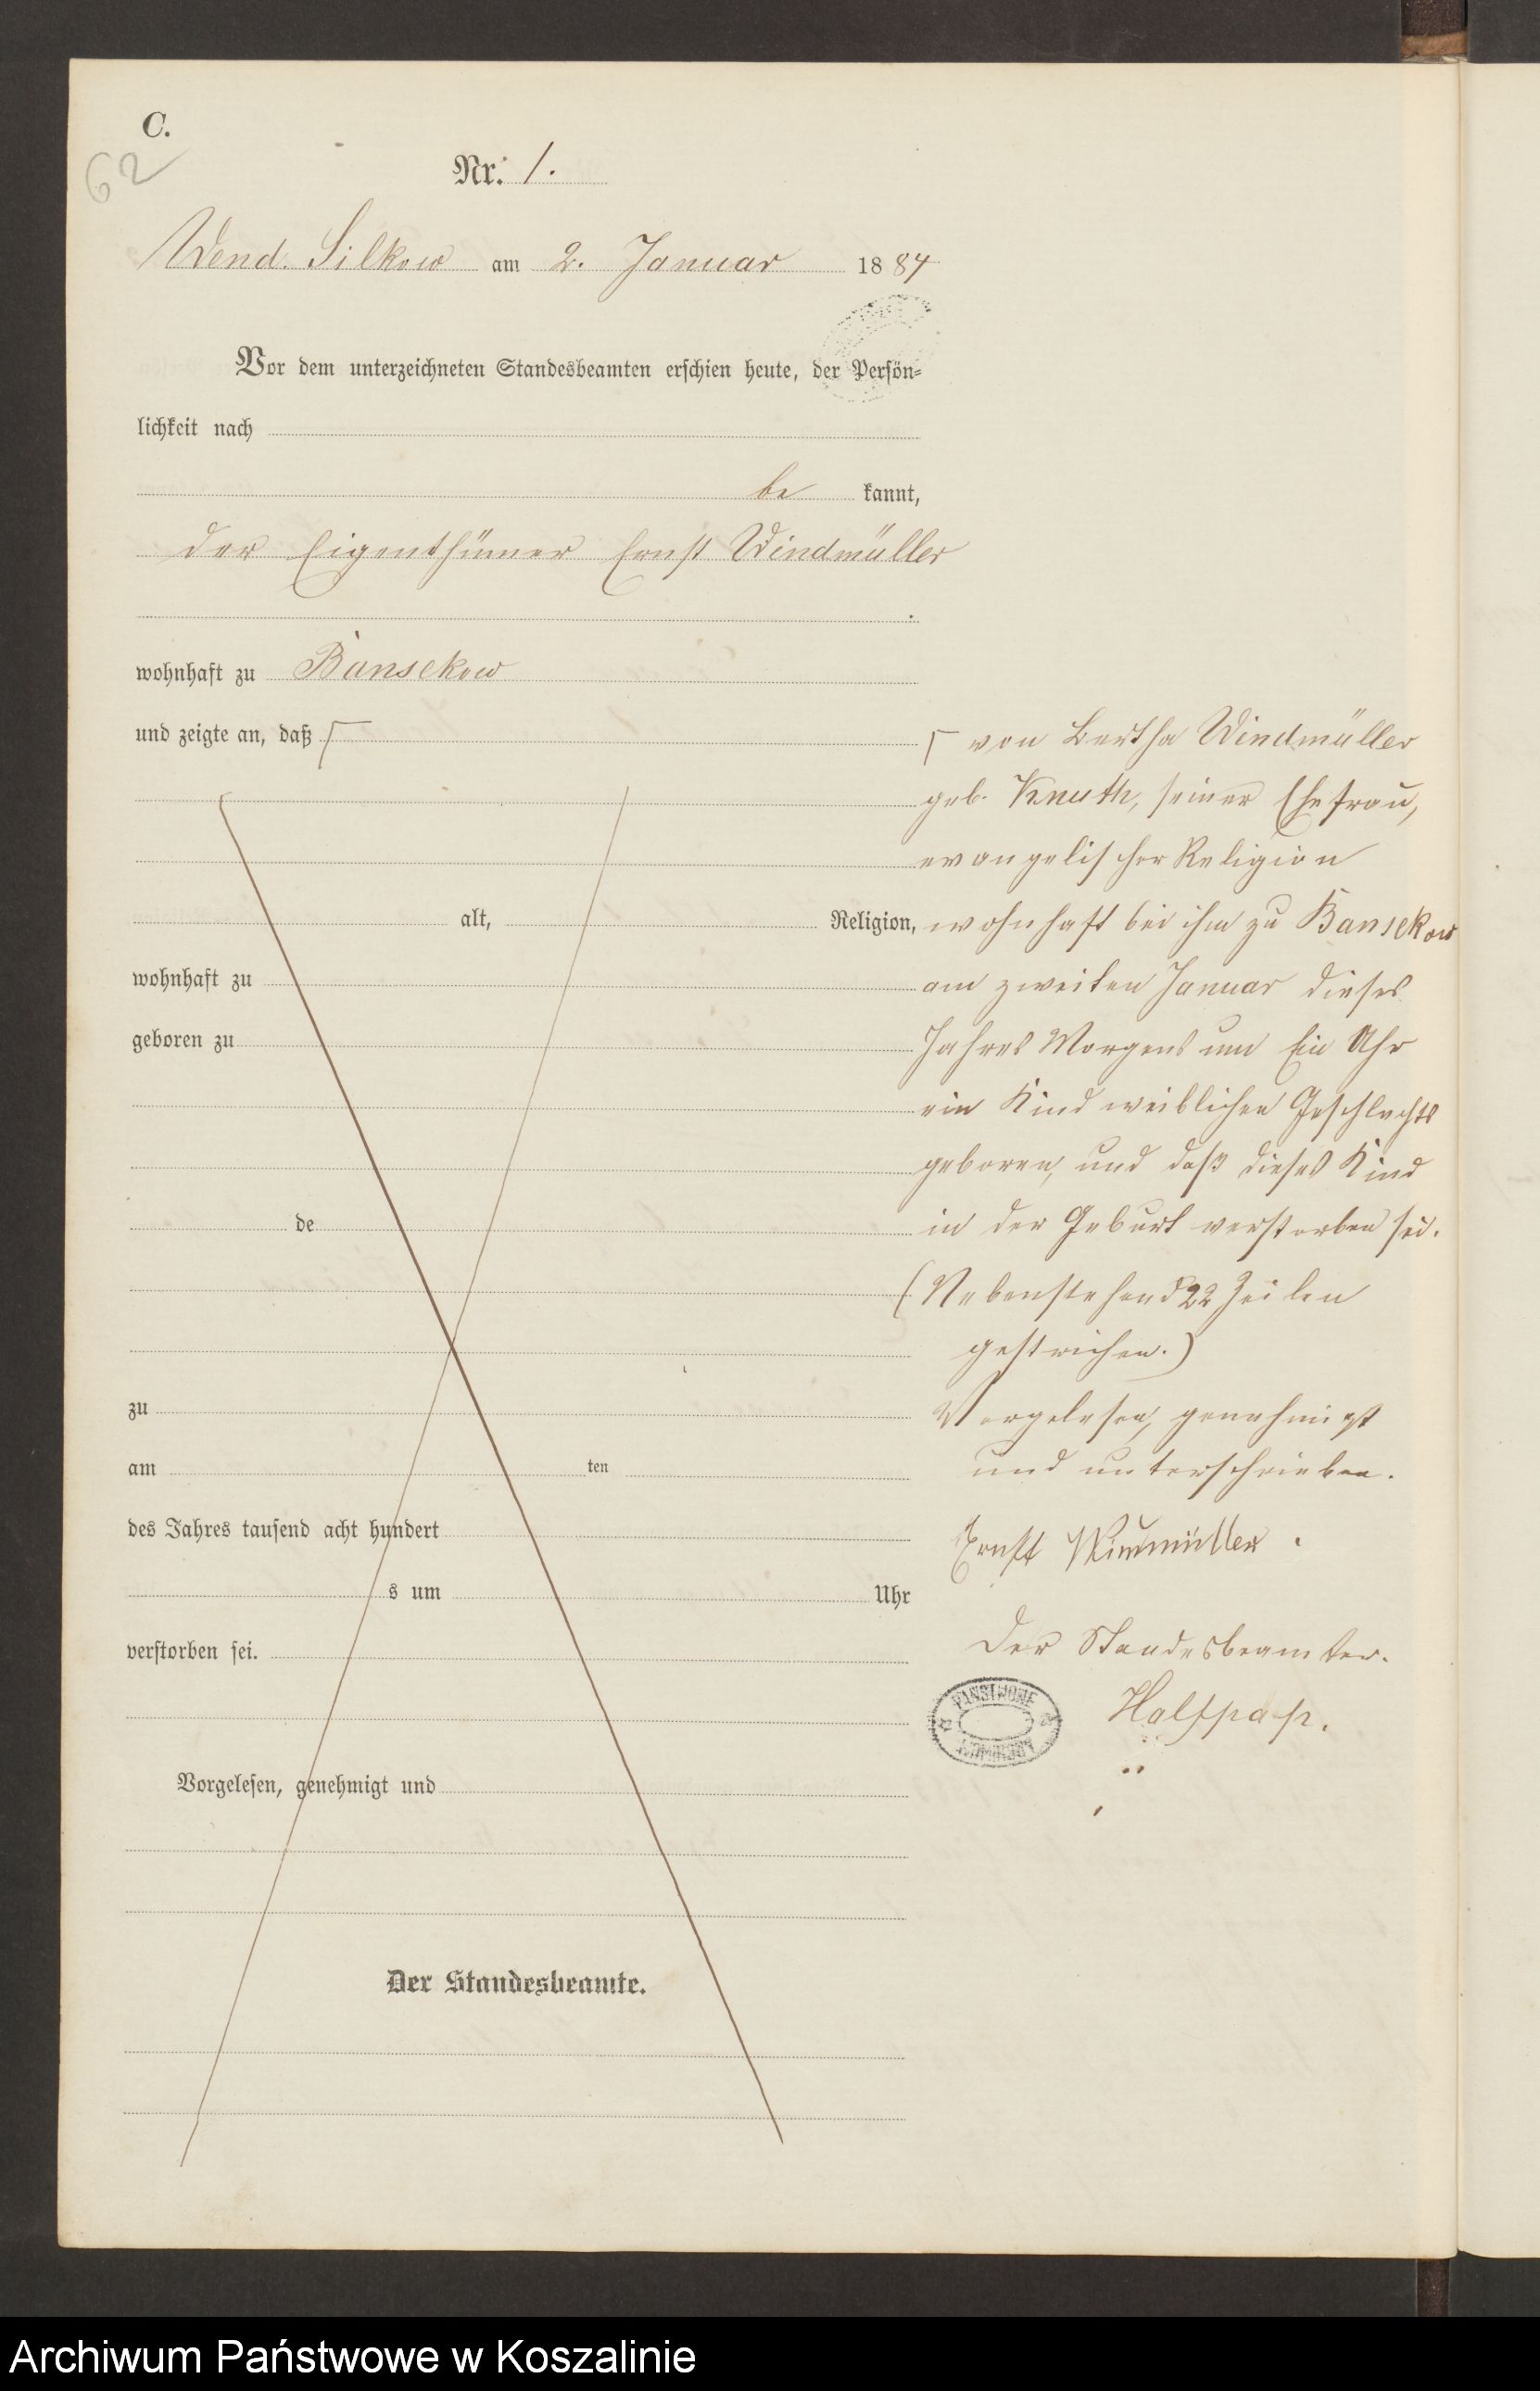 C.
62
Nr. 1.
Wend. Silkow am 2. Januar 1884
Vor dem unterzeichneten Standesbeamten erschien heute, der Persön-
lichkeit nach
be kannt,
der Eigenthümer Ernst Windmüller
wohnhaft zu Bansekow
und zeigte an, daß
von Bertha Windmüller
geb. Knuth, seiner Ehefrau,
evangelischer Religion
alt, Religion, wohnhaft bei ihm zu Bansekow
wohnhaft zu
am zweiten Januar dieses
geboren zu
Jahres Morgens um Ein Uhr
ein Kind weiblichen Geschlechts
geboren, und daß dieses Kind
de
in der Geburt verstorben sei.
(Nebenstehend 22 Zeilen
gestrichen.)
zu
Vorgelesen, genehmigt
am ten
und unterschrieben.
des Jahres tausend acht hundert
Ernst Windmüller
s um Uhr
verstorben sei.
Der Standesbeamter.
PAŃSTWOWE
Halfpap.
Vorgelesen, genehmigt und
Der Standesbeamte.
Archiwum Państwowe w Koszalinie